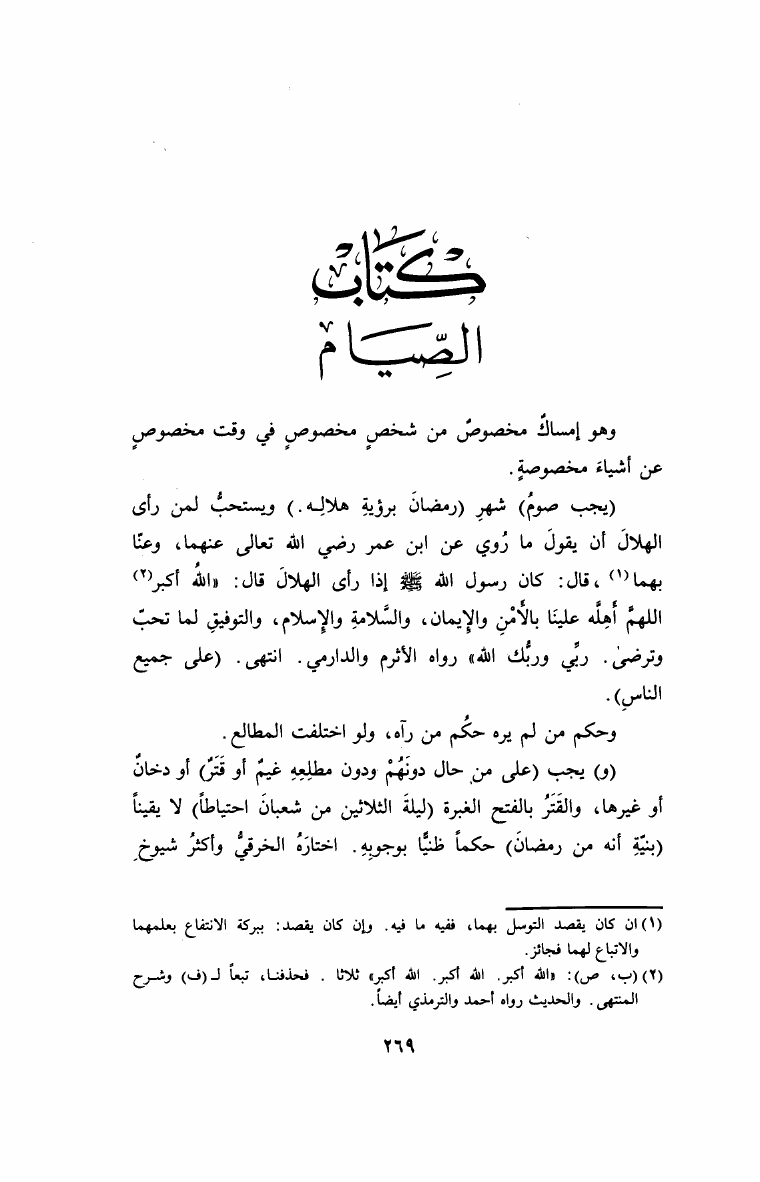 كتاب
الصيام
وهو إمساكٌ مخصوصٌ من شخصٍ مخصوصٍ في وقت مخصوصٍ
عن أشياءَ مخصوصةٍ.
(يجب صومُ) شهرِ (رمضانَ برؤيةِ هلالِـه.) ويستحبُّ لمن رأى
الهلالَ أن يقولَ ما رُوي عن ابن عمر رضي الله تعالى عنهما، وعنّا
بهما(١)، قال: كان رسول الله ﷺ إذا رأى الهلالَ قال: «اللهُ أكبر(٢)
اللهمَّ أَهِلَّه علينَا بالأَمْنِ والإيمان، والسَّلامةِ والإسلام، والتوفيقِ لما تحبّ
وترضىٰ. ربِّي وربُّك الله» رواه الأثرم والدارمي. انتهى. (على جميع
الناسِ).
وحكم من لم يره حكُم من رآه، ولو اختلفت المطالع.
(و) يجب (على من حال دونَهُمْ ودون مطلعِهِ غيمٌ أو قَتَرٌ) أو دخانٌ
أو غيرها، والقَتَرُ بالفتح الغبرة (ليلةَ الثلاثين من شعبانَ احتياطاً) لا يقيناً
(بنيّةِ أنه من رمضانَ) حكماً ظنيًّا بوجوبِهِ. اختارَهُ الخرقيُّ وأكثرُ شيوخِ
(١) ان كان يقصد التوسل بهما، ففيه ما فيه. وإن كان يقصد: ببركة الانتفاع بعلمهما
والاتباع لهما فجائز.
(٢) (ب، ص): «الله أكبر. الله أكبر. الله أكبر» ثلاثا . فحذفنـا، تبعاً لـ(ف) وشـرح
المنتهى. والحديث رواه أحمد والترمذي أيضاً.
٢٦٩